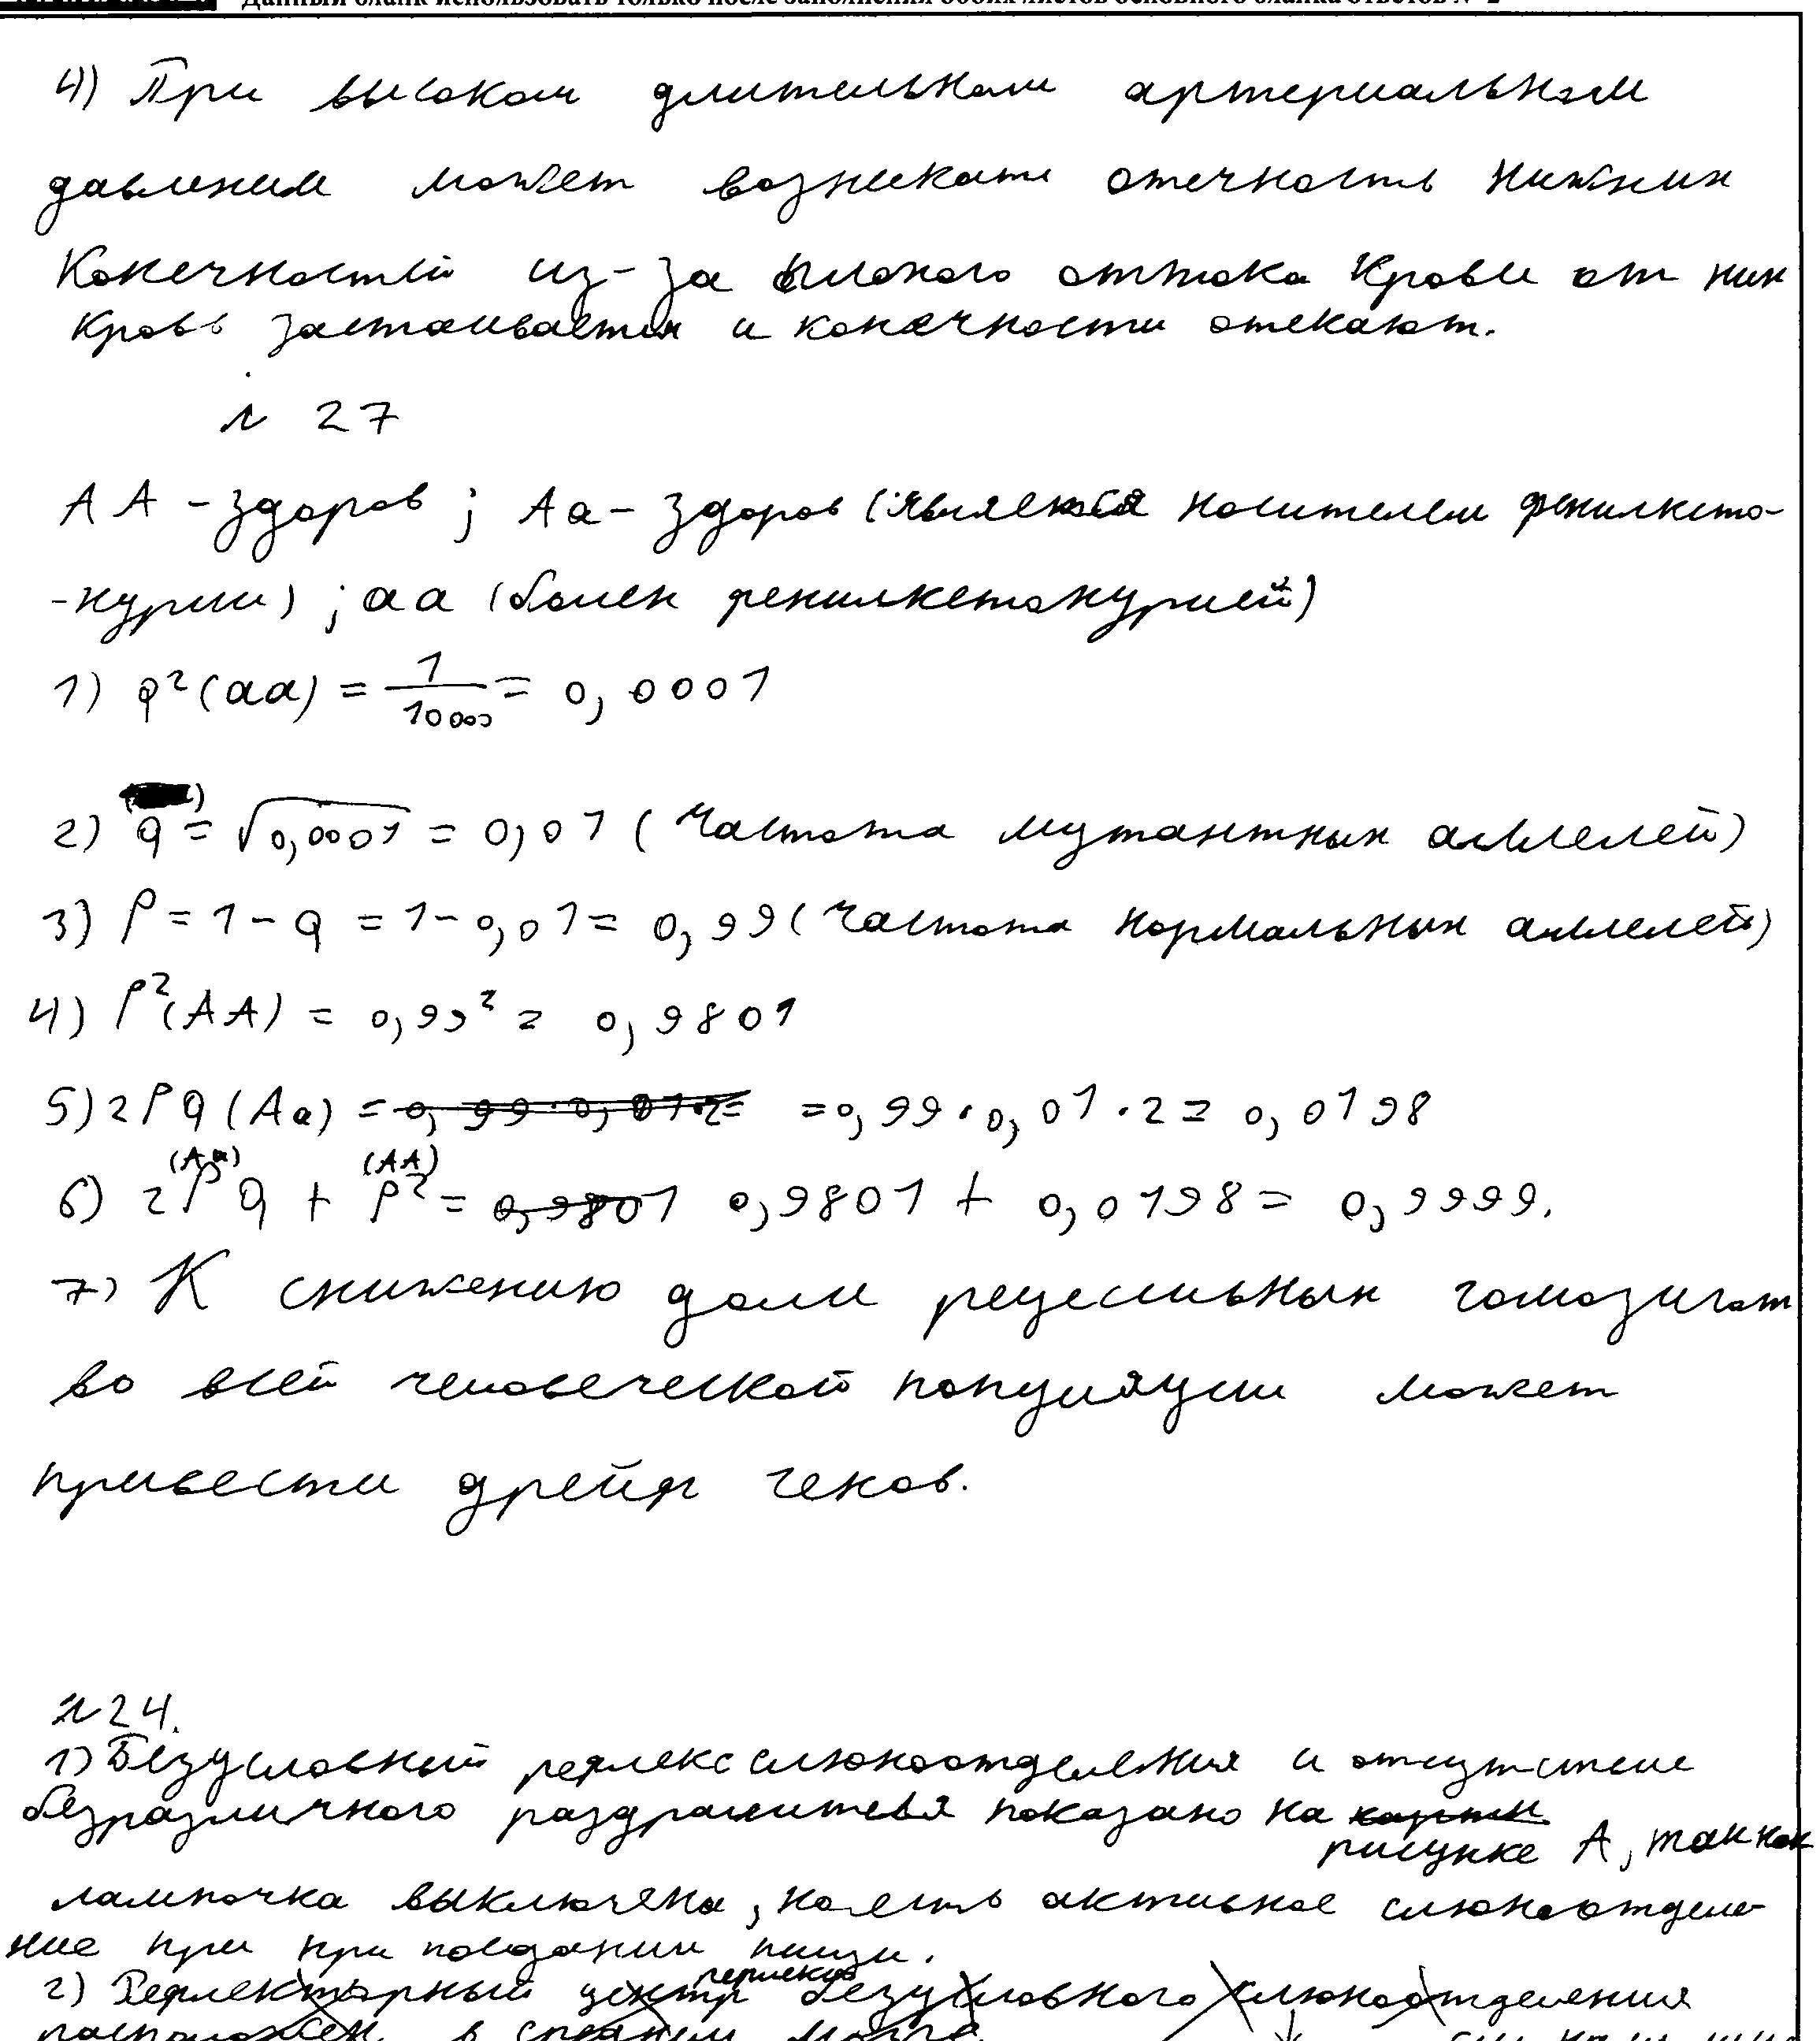 Данный бланк использовать только после заполнения обоих листов основного бланка ответов № 2
4) При высоком длительном артериальном
давлении может возникать отечность нижних
конечностей из-за плохого оттока крови от них
кровь застаивается и конечности отекают.
№ 27
АА - здоров ; Аа - здоров (является носителем фенилкето-
-нурии) ; аа (болен фенилкетонурией)
1) q²(аа) = 1/10000 = 0,0001
2) q = √0,0001 = 0,01 (частота мутантных аллелей)
3) p = 1 - q = 1 - 0,01 = 0,99 (частота нормальных аллелей)
4) p²(АА) = 0,99² = 0,9801
5) 2pq (Аа) = 0,99·0,01·2= =0,99·0,01·2= 0,0198
(Аа) (АА)
6) 2pq + p² = 0,9801 0,9801 + 0,0198 = 0,9999.
7) К снижению доли рецессивных гомозигот
во всей человеческой популяции может
привести дрейф генов.
№24.
1) Безусловный рефлекс слюноотделения и отсутствие
безразличного раздражителя показано на
рисунке А, так как
лампочка выключена, но есть активное слюноотделе-
ние при при поедании пищи.
2) Рефлекторный центр безусловного слюноотделения
расположен в среднем мозге.